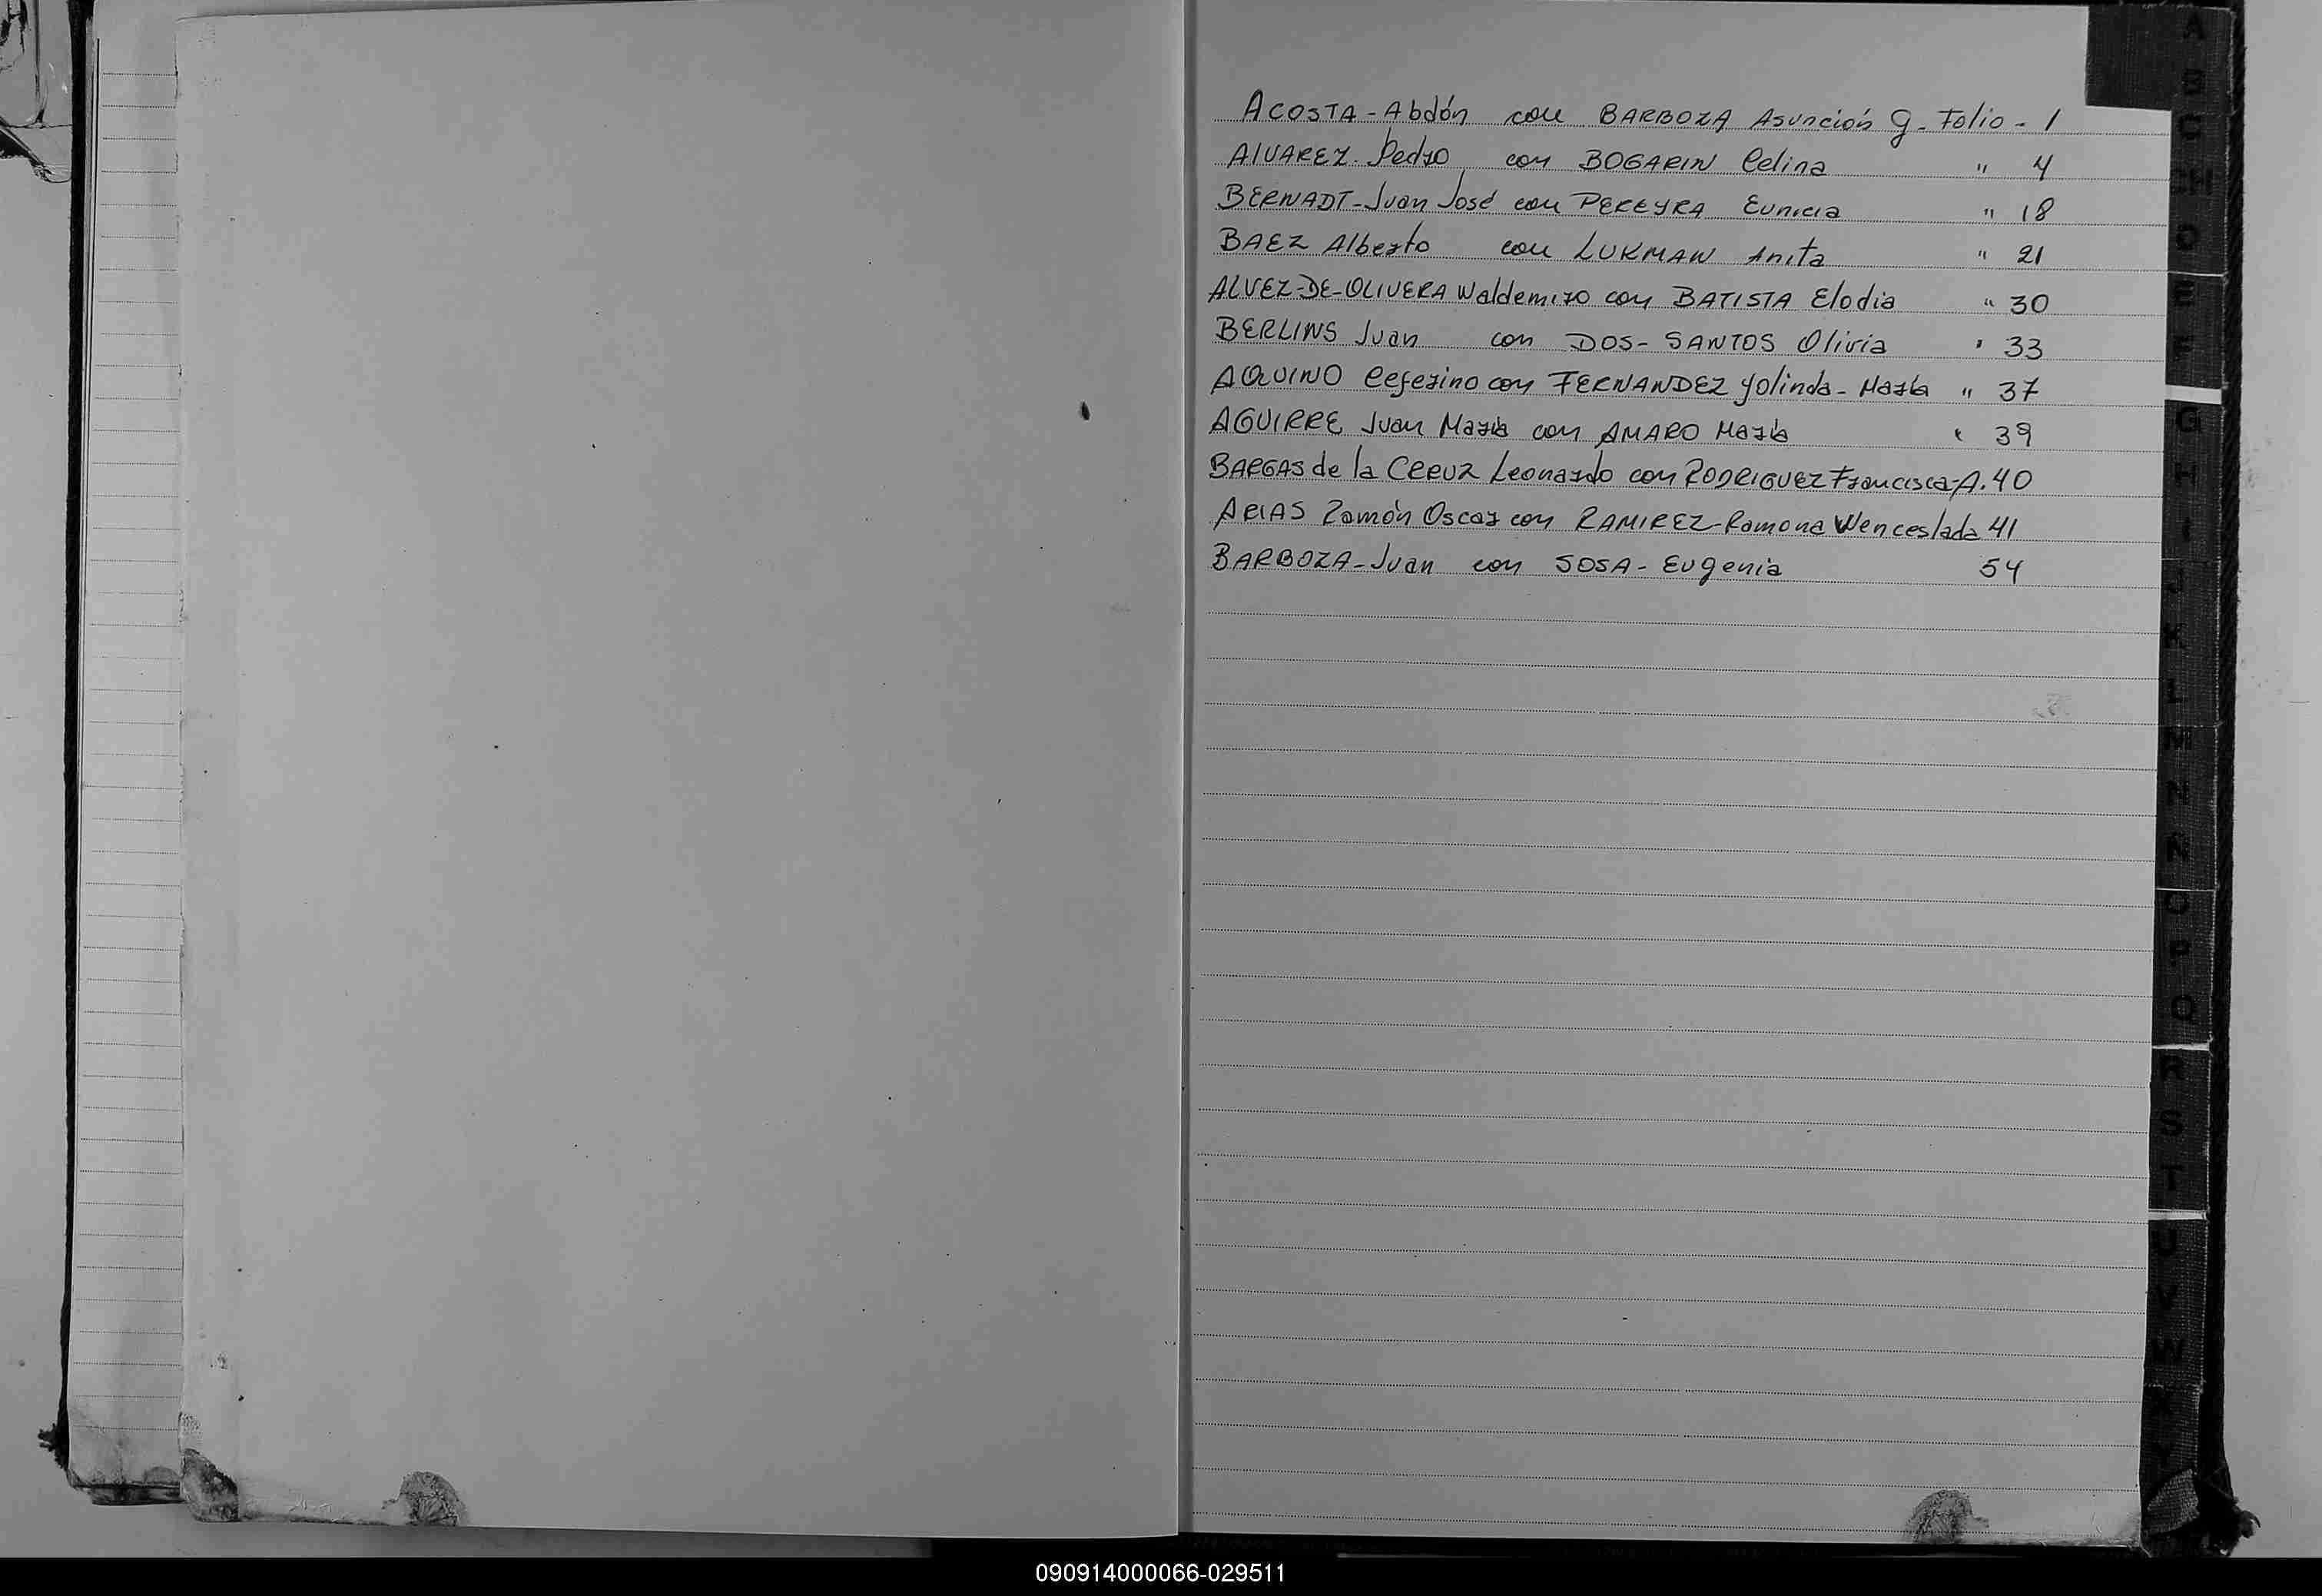 ACOSTA - Abdón con BARBOZA Asunción G. Folio - 1
ALVAREZ. Pedro con BOGARIN Celina " 4
BERNADT - Juan José con PEREYRA Eunicia " 18
BAEZ Alberto con LUKMAN Anita " 21
ALVEZ-DE-OLIVERA Waldemiro con BATISTA Elodia " 30
BERLINS Juan con DOS-SANTOS Olivia " 33
AQUINO Ceferino con FERNANDEZ Yolinda - María " 37
AGUIRRE Juan María con AMARO María " 39
BARGAS de la CRRUZ Leonardo con RODRIGUEZ Francisca-A. 40
ARIAS Ramón Oscar con RAMIREZ - Ramona Wenceslada 41
BARBOZA - Juan con SOSA - Eugenia 54
A
B
C
D
E
F
G
H
I
J
K
L
M
N
Ñ
O
P
Q
R
S
T
U
V
W
X
Y
090914000066-029511